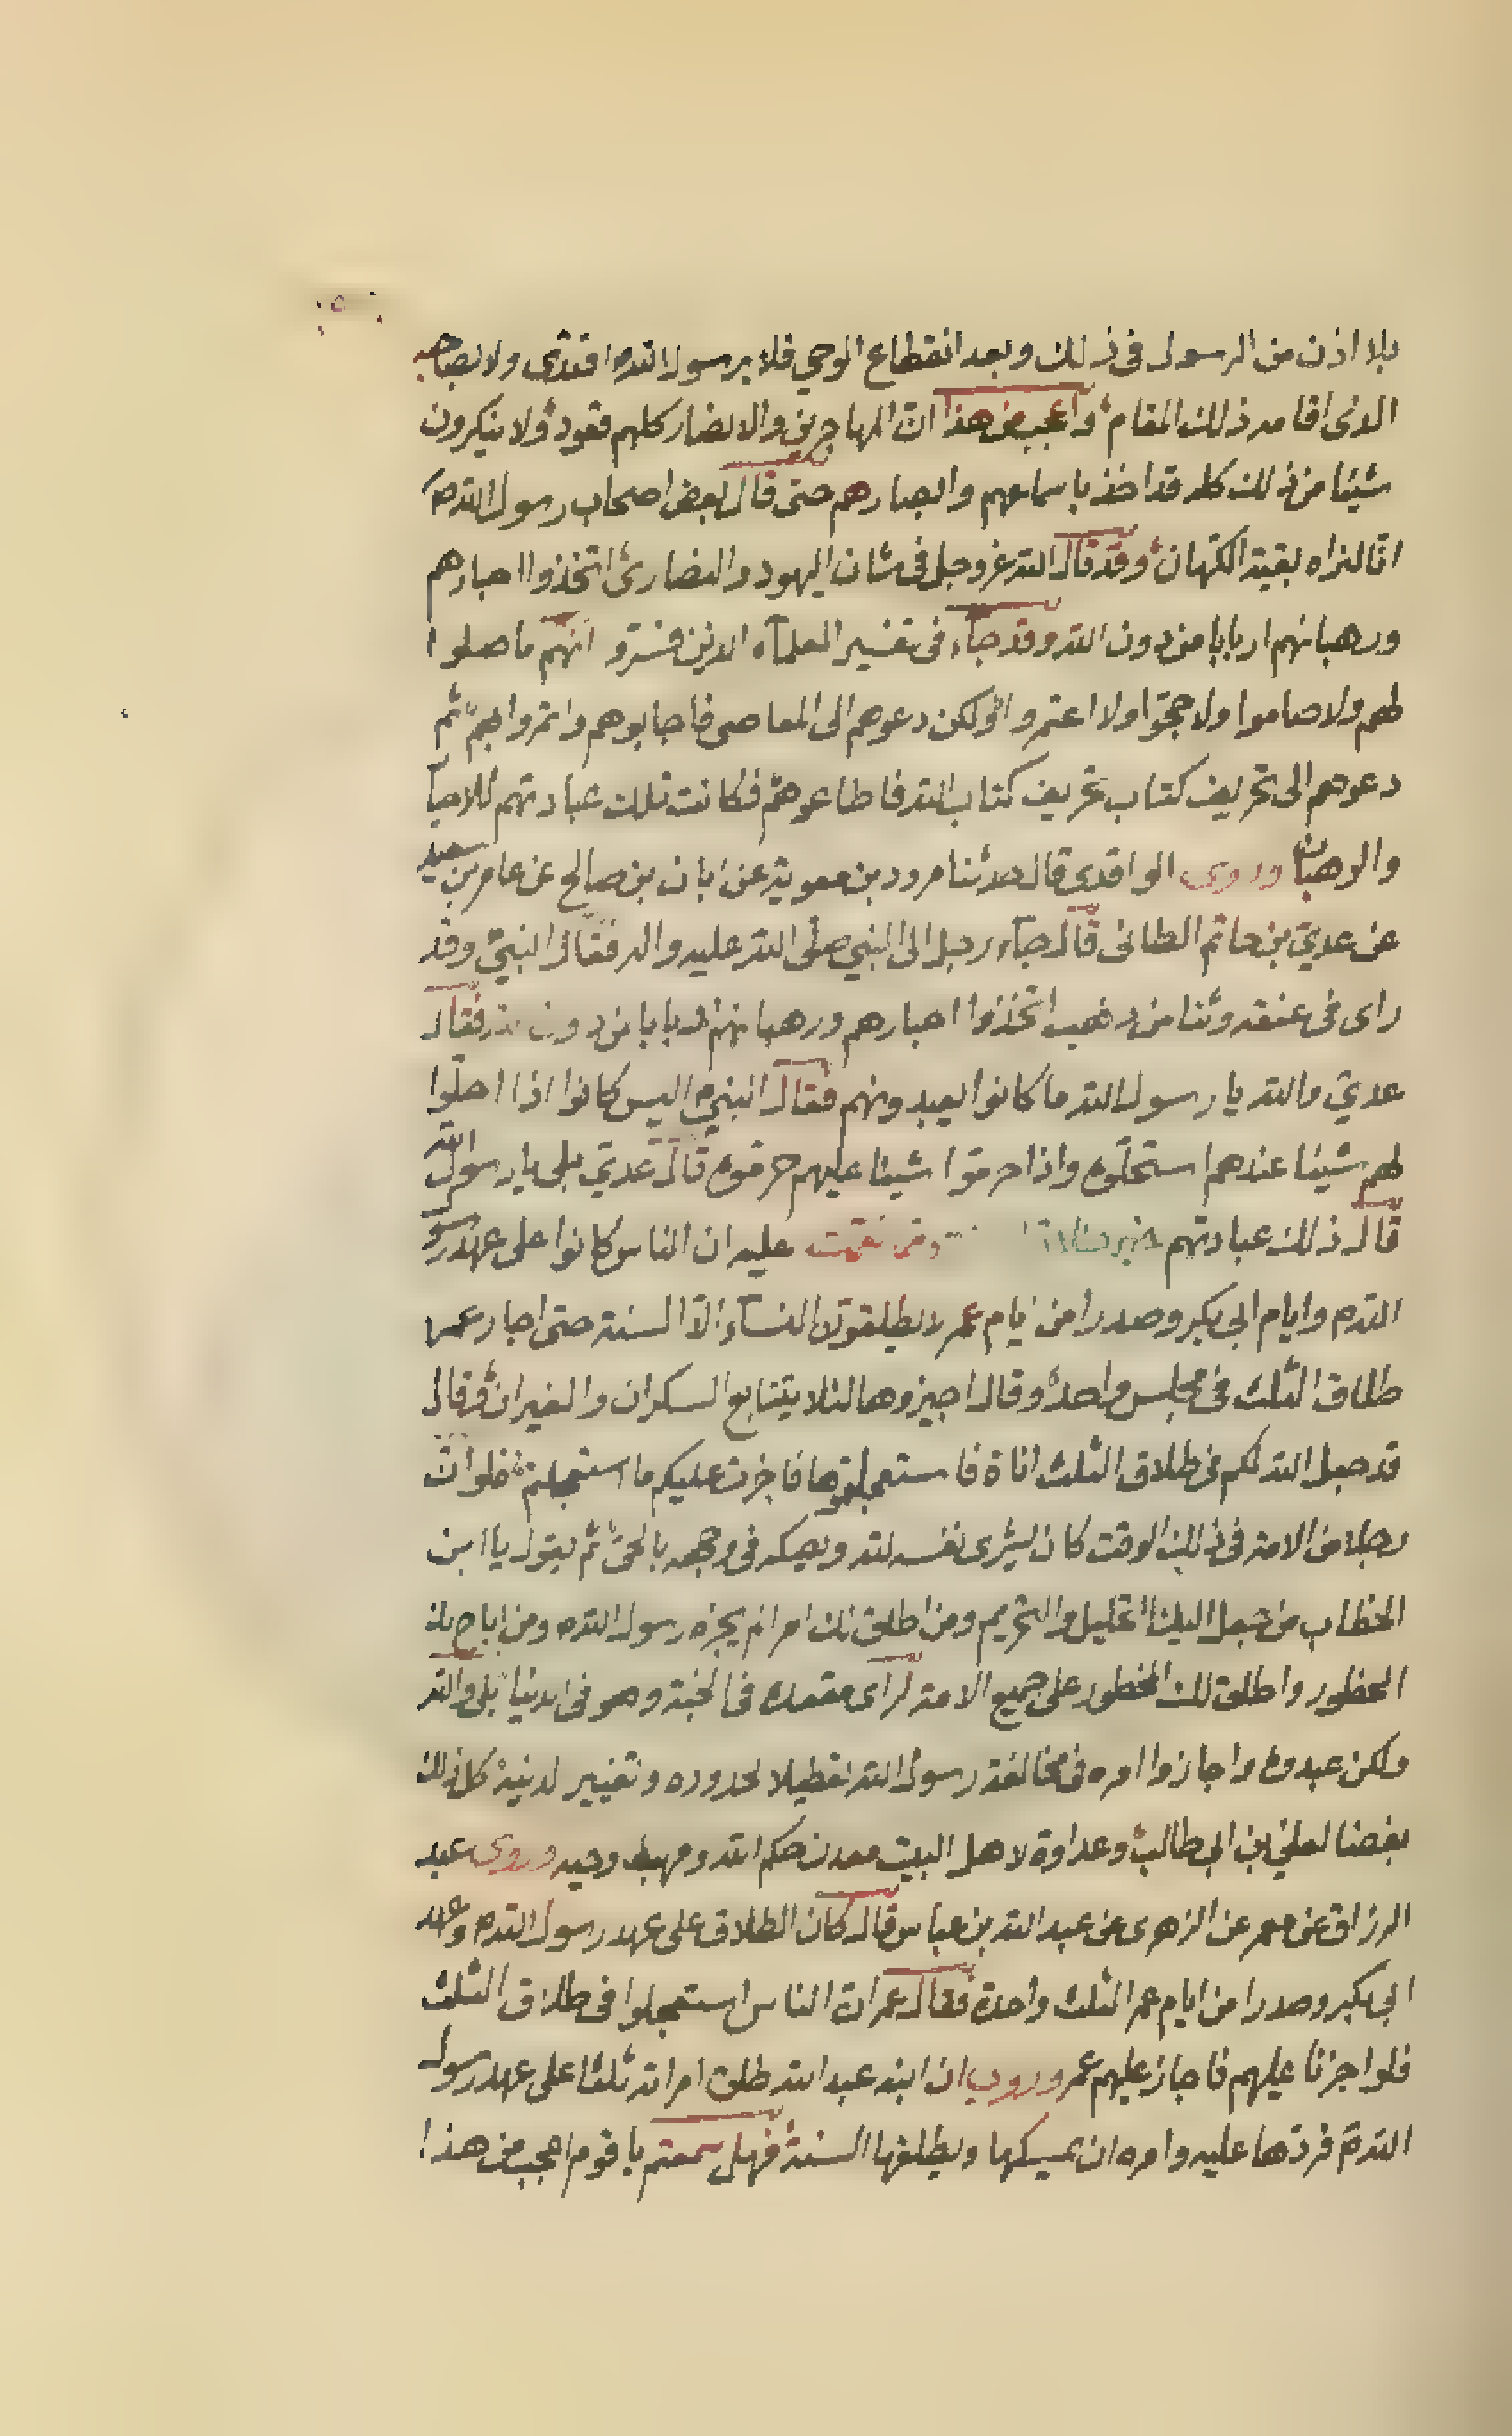 بلا اذن من الرسول فى ذلك وبعد انقطاع الوحي فلا برسول الله ص اقتدى ولا بصاحبه
الذى اقامه ذلك المقام واعجب من هذا انّ المهاجرين والانصار كلهم قعود ولا ينكرون
شيئا من ذلك كله قد اخذ باسماعهم وابصارهم حتى قال بعض اصحاب رسول الله ص
انا لنراه بقية الكهان وقد قال الله عز وجل فى شان اليهود والنصارى اتخذوا احبارهم
ورهبانهم اربابا من دون الله وقد جآء فى تفسير العلمآء الذين فسرو انهم ما صلوا
لهم ولا صاموا ولا حجوا ولا اعتمروا ولكن دعوهم الى المعاصى فاجابوهم وائتمروا بهم ثم
دعوهم الى تحريف كتاب تحريف كتاب الله فاطاعوهم فكانت تلك عبادتهم للاحبا
والرهبان وروى الواقدى قال حدثنا مرود بن معوية عن ابان بن صالح عن عامر بن سعيد
عن عديّ بن حاتم الطائى قال جآء رجل الى النبي صلى الله عليه واله فقال النبيّ وقد
راى فى عنقه وثنا من ذهب اتخذوا احبارهم ورهبانهم اربابا من دون الله فقال
عديّ والله يا رسول الله ما كانوا يعبدونهم فقال النبي ص اليس كانوا اذا احلّوا
لهم شيئا عندهم استحلّوه واذا حرموا شيئا عليهم حرموه قال عديّ بلى يا رسول الله
قال ذلك عبادتهم وممن نقمت عليه ان الناس كانوا على عهد رسو
الله ص وايام ابى بكر وصدرا من ايام عمر لا يطلقون النسآء الّا السنة حتى اجاز عمر
طلاق الثلث فى مجلس واحد وقال اجيزوها لئلا يتتابع السكران والغيران وقال
قد جعل الله لكم فى طلاق الثلث اناة فاستعجلتموها فاجزت عليكم ما استعجلتم فلو انّ
رجلا من الامة فى ذلك الوقت كان يشرى نفسه لله ويصكه فى وجهه بالحق ثم يقول يا ابن
الخطاب من جعل اليك التحليل والتحريم ومن اطلق لك امرا لم يجزه رسول الله ص ومن اباح لك
المحظور واطلق لك المحظور على جميع الامة لرآى مقعده فى الجنة وهو فى الدنيا بلى والله
ولكن عبدوه واجازوا امره فى مخالفة رسول الله تعطيلا لحدوده وتغيير لدينه كل ذلك
بغضا لعلي بن ابى طالب وعداوة لاهل البيت معدن حكم الله ومهبط وحيه وروى عبد
الرزاق عن معمر عن الزهرى عن عبد الله بن عباس قال كان الطلاق على عهد رسول الله ص وعهد
ابى بكر وصدرا من ايام عمر الثلث واحدة فقال عمر ان الناس استعجلوا فى طلاق الثلث
فلو اجزنا عليهم فاجاز عليهم عمر وروى ان ابنه عبد الله طلق امراته ثلثا على عهد رسول
الله ص فردّها عليه وامره ان يمسكها ويطلقها السنة فهل سمعتم يا قوم اعجب من هذا